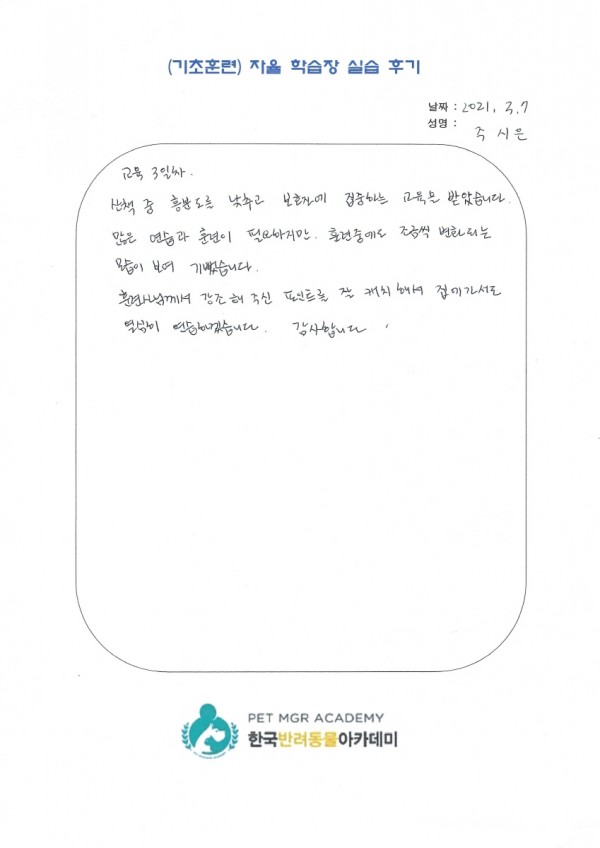 (기초훈련) 자율 학습장 실습 후기
날짜 : 2021. 3.7
성명 : 주 시은
교육 3일차.
산책 중 흥분도를 낮추고 보호자에 집중하는 교육을 받았습니다.
많은 연습과 훈련이 필요하지만. 훈련중에도 조금씩 변화되는
모습이 보여 기뻤습니다.
훈련사님께서 강조해 주신 포인트를 잘 캐치해서 집에가서도
열심히 연습하겠습니다. 감사합니다
PET MGR ACADEMY
한국반려동물아카데미